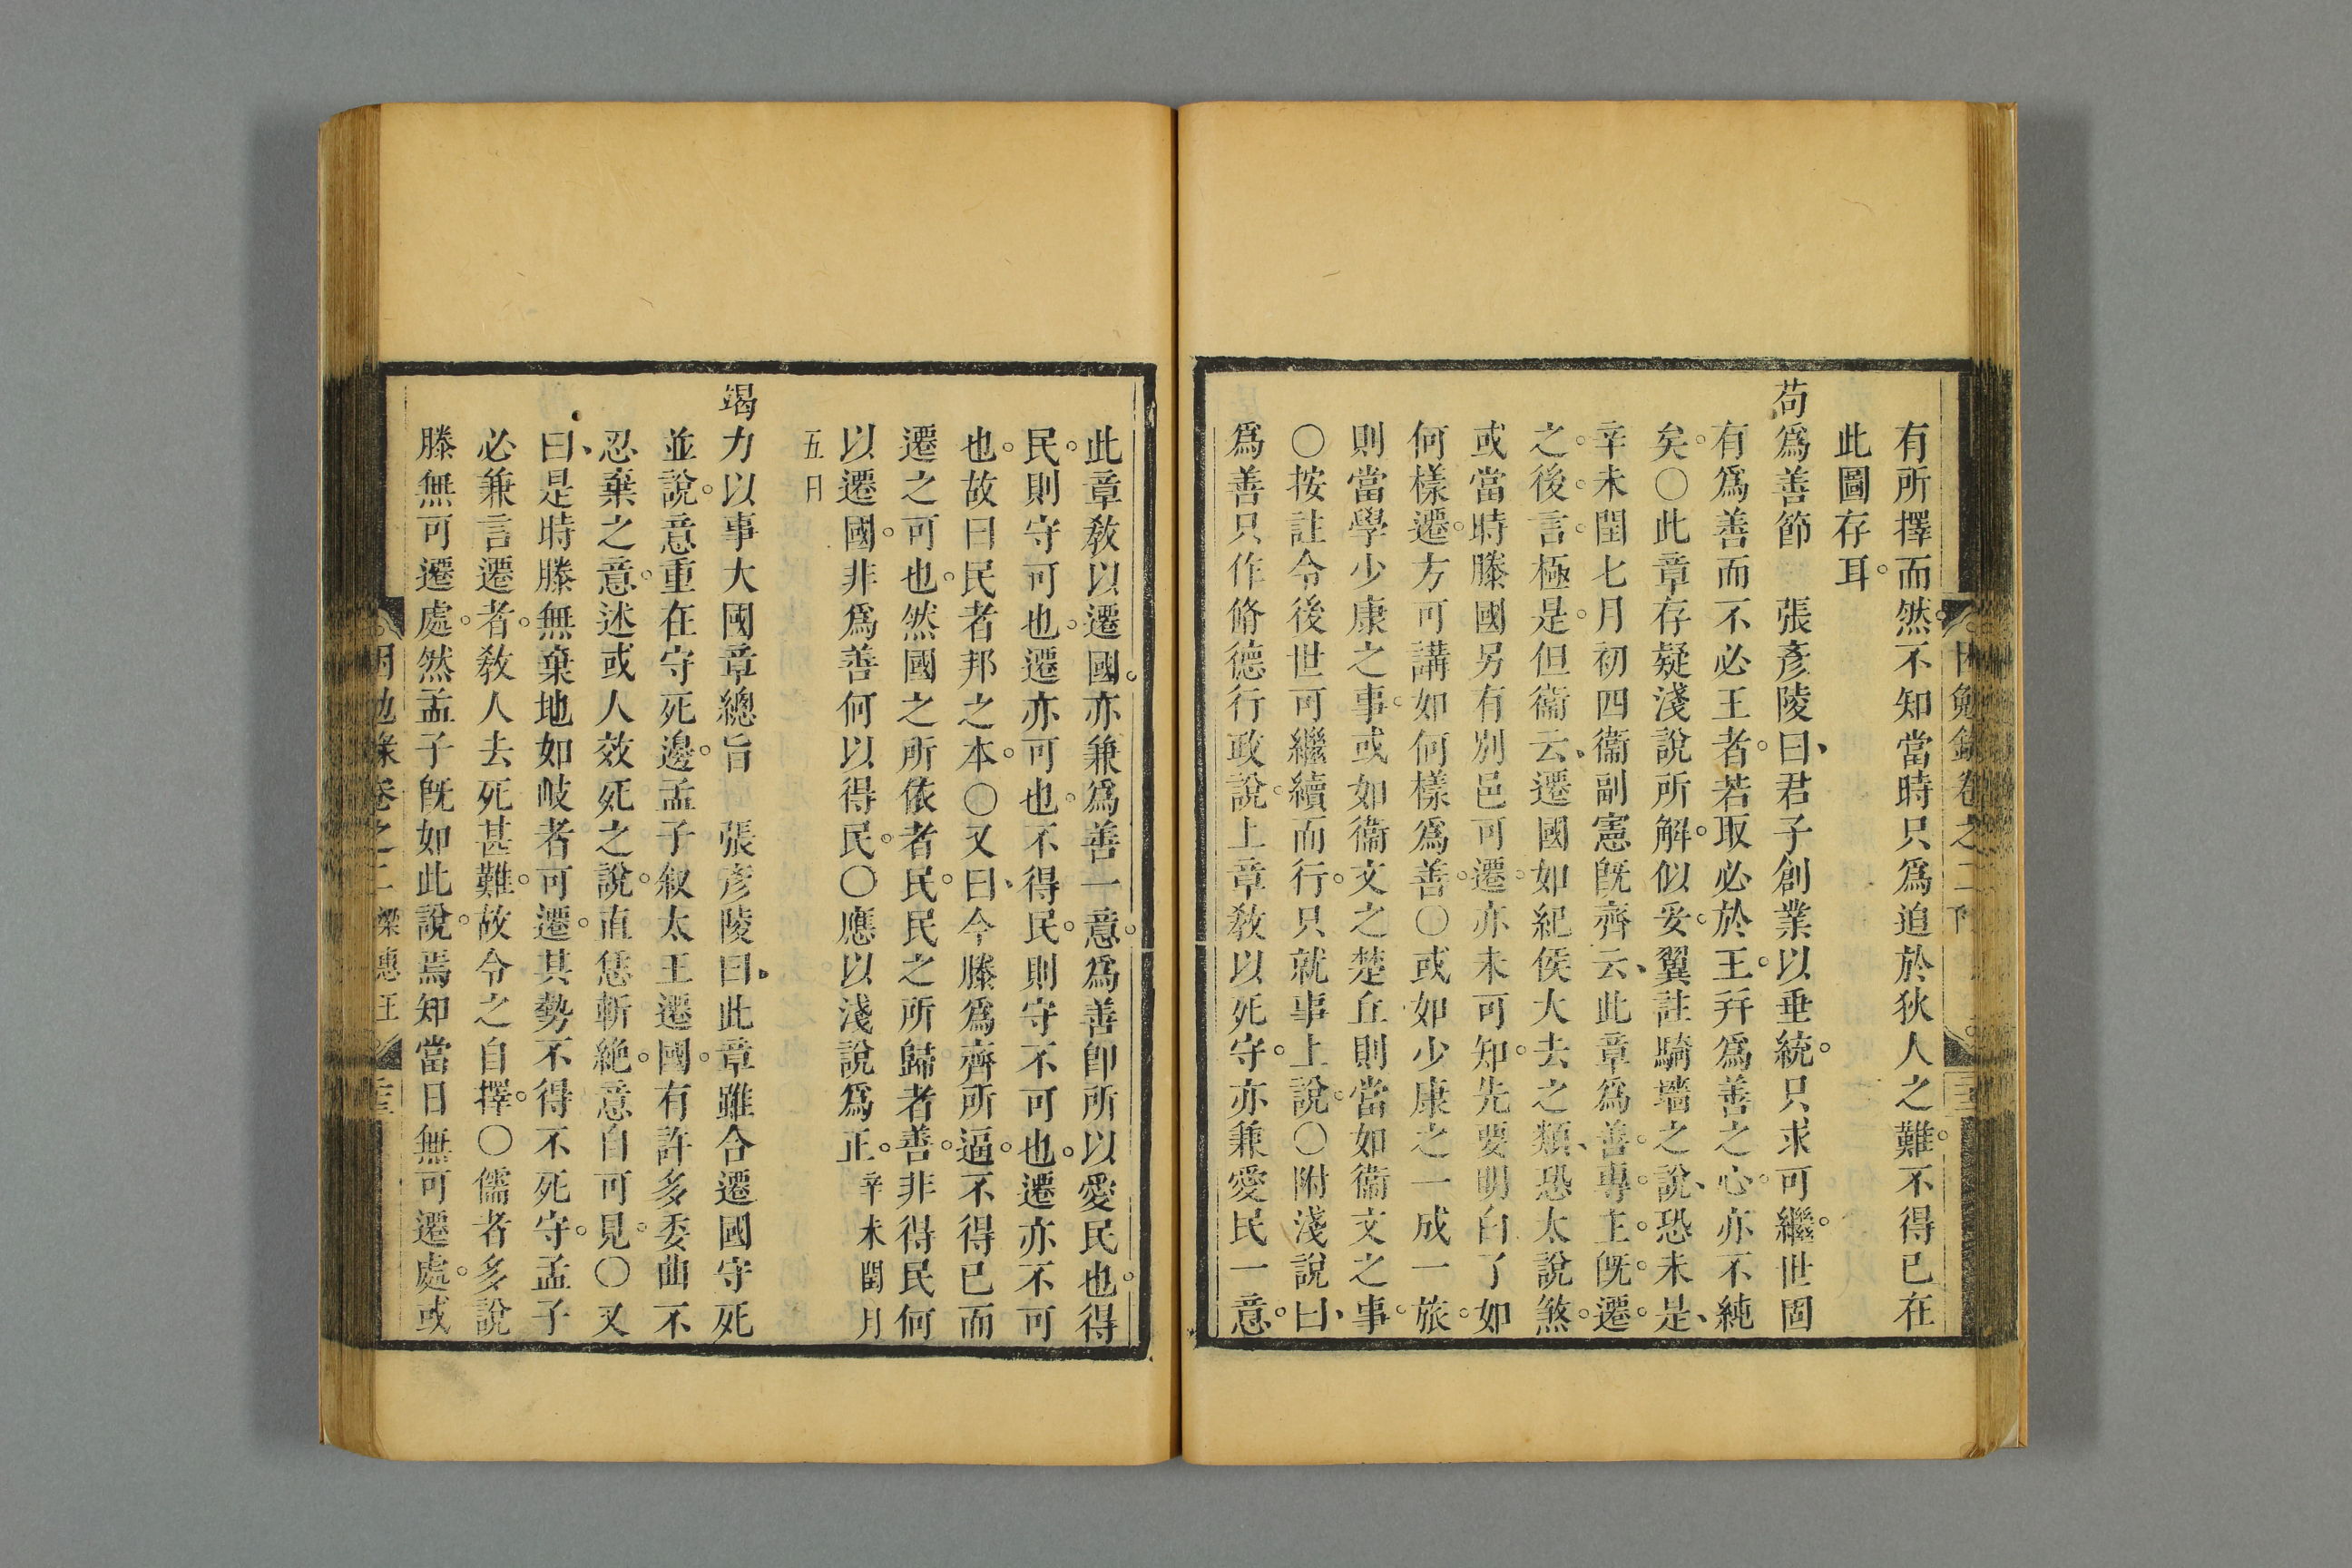 有所擇而然不知當時只爲迫於狄人之難不得已在
此圖存耳
苟爲善節　張彥陵曰君子創業以垂統只求可繼世固
有爲善而不必王者若取必於王幷爲善之心亦不純
矣○此章存疑淺說所解似妥翼註騎墻之說恐未是
辛未閏七月初四衞副憲旣齊云此章爲善專主旣遷
之後言極是但衞云遷國如紀侯大去之類恐太說煞
或當時滕國另有別邑可遷亦未可知先要明白了如
何樣遷方可講如何樣爲善○或如少康之一成一旅
則當學少康之事或如衞文之楚丘則當如衞文之事
○按註令後世可繼續而行只就事上說○附淺說曰
爲善只作脩德行政說上章敎以死守亦兼愛民一意
此章敎以遷國亦兼爲善一意爲善卽所以愛民也得
民則守可也遷亦可也不得民則守不可也遷亦不可
也故曰民者邦之本○又曰今滕爲齊所逼不得已而
遷之可也然國之所依者民民之所歸者善非得民何
以遷國非爲善何以得民○應以淺說爲正辛未閏月
五日
竭力以事大國章總旨　張彥陵曰此章雖合遷國守死
並說意重在守死邊孟子叙太王遷國有許多委曲不
忍棄之意述或人效死之說直恁斬絕意自可見○又
曰是時滕無棄地如岐者可遷其勢不得不死守孟子
必兼言遷者敎人去死甚難故令之自擇○儒者多說
滕無可遷處然孟子旣如此說焉知當日無可遷處或
勉錄卷之二 梁惠王